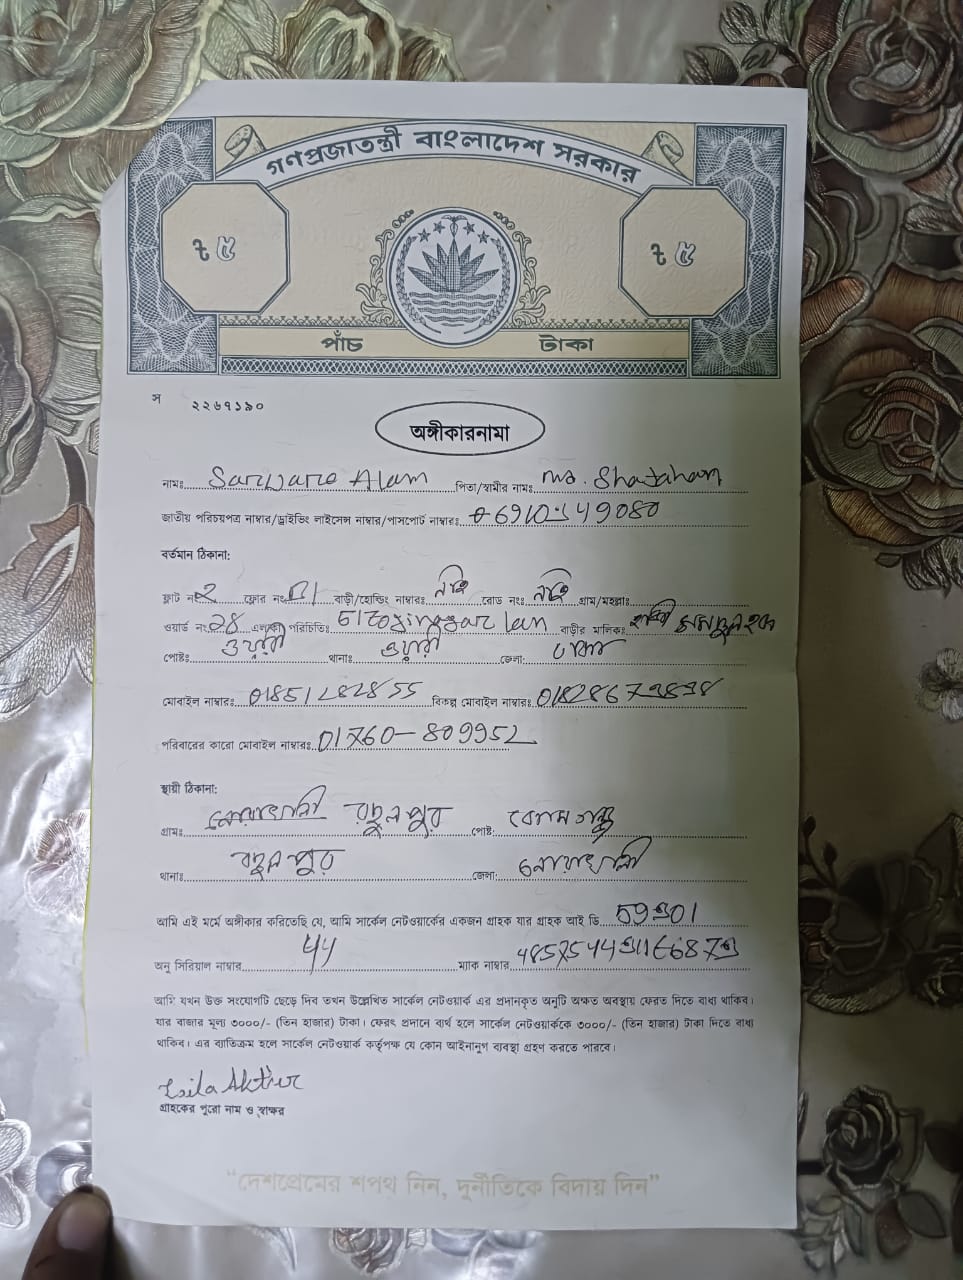 গণপ্রজাতন্ত্রী বাংলাদেশ সরকার
৳ ৫ ৳ ৫
পাঁচ টাকা
স ২২৬৭১৯০
অঙ্গীকারনামা
নামঃ Sarware Alam পিতা/স্বামীর নামঃ Mo. Shajaham
জাতীয় পরিচয়পত্র নাম্বার/ড্রাইভিং লাইসেন্স নাম্বার/পাসপোর্ট নাম্বারঃ
বর্তমান ঠিকানা:
ফ্লাট নং 2 ফ্লোর নং বাড়ী/হোল্ডিং নাম্বারঃ নাই রোড নংঃ নাই গ্রাম/মহল্লাঃ
ওয়ার্ড নং এলাকা পরিচিতিঃ বাড়ীর মালিকঃ
পোষ্টঃ ওয়ারী থানাঃ ওয়ারী জেলা: ঢাকা
মোবাইল নাম্বারঃ বিকল্প মোবাইল নাম্বারঃ
পরিবারের কারো মোবাইল নাম্বারঃ 01760-809952
স্থায়ী ঠিকানা:
গ্রামঃ নোয়াখালী রছুলপুর পোষ্ট:
থানাঃ রছুলপুর জেলা: নোয়াখালী
আমি এই মর্মে অঙ্গীকার করিতেছি যে, আমি সার্কেল নেটওয়ার্কের একজন গ্রাহক যার গ্রাহক আই ডি
অনু সিরিয়াল নাম্বার ম্যাক নাম্বার
আমি যখন উক্ত সংযোগটি ছেড়ে দিব তখন উল্লেখিত সার্কেল নেটওয়ার্ক এর প্রদানকৃত অনুটি অক্ষত অবস্থায় ফেরত দিতে বাধ্য থাকিব।
যার বাজার মূল্য ৩০০০/- (তিন হাজার) টাকা। ফেরৎ প্রদানে ব্যর্থ হলে সার্কেল নেটওয়ার্ককে ৩০০০/- (তিন হাজার) টাকা দিতে বাধ্য
থাকিব। এর ব্যতিক্রম হলে সার্কেল নেটওয়ার্ক কর্তৃপক্ষ যে কোন আইনানুগ ব্যবস্থা গ্রহণ করতে পারবে।
Laila Akther
গ্রাহকের পুরো নাম ও স্বাক্ষর
“দেশপ্রেমের শপথ নিন, দুর্নীতিকে বিদায় দিন”